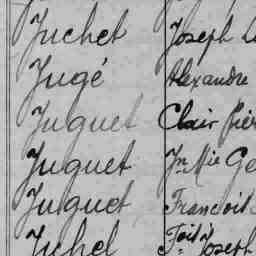 Juchet Joseph
Jugé Alexandre
Juguet Clair
Juguet Jn Mie
Juguet Francois
Juhel Joseph